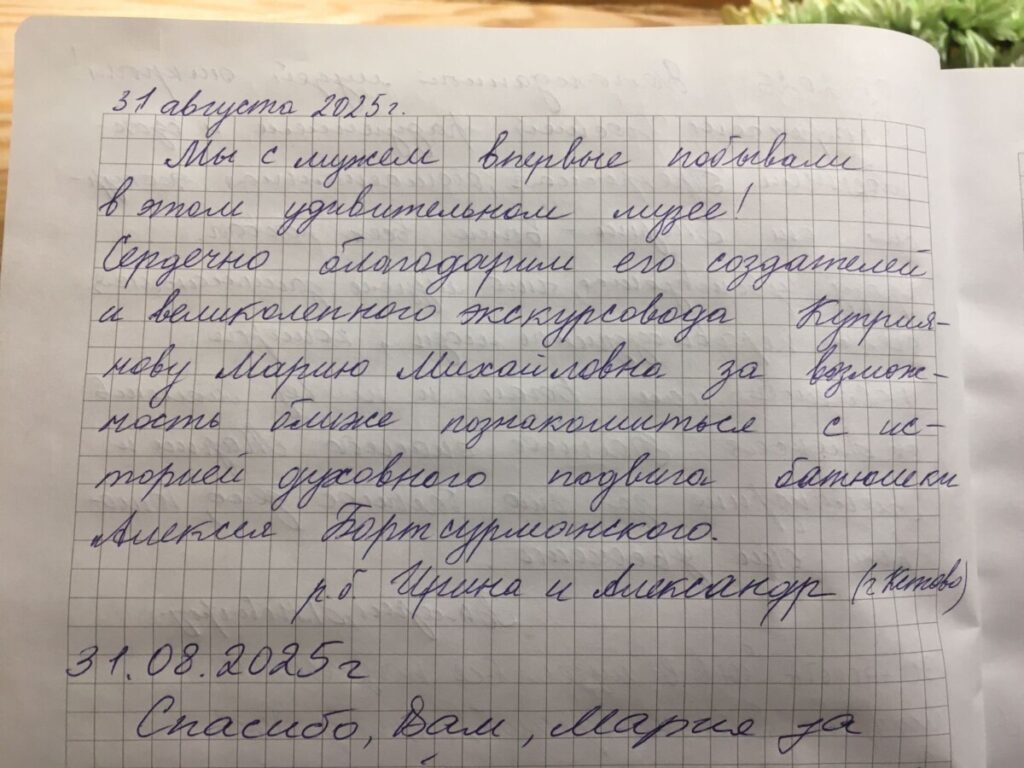 31 августа 2025г.
Мы с мужем впервые побывали
в этом удивительном музее!
Сердечно благодарим его создателей
и великолепного экскурсовода Куприя-
нову Марию Михайловна за возмож-
ность ближе познакомиться с ис-
торией духовного подвига батюшки
Алексея Бортсурманского.
р.б Ирина и Александр (г Кстово)
31.08.2025г
Спасибо, Вам, Мария за